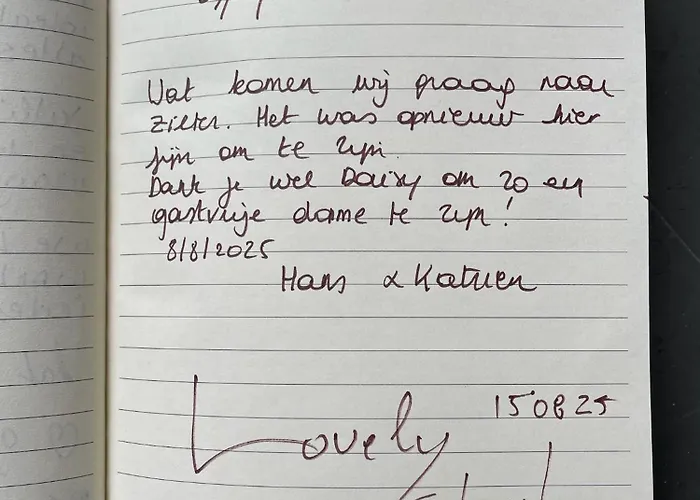 Wat komen wij graag naar
Zilter. Het was opnieuw hier
fijn om te zijn.
Dank je wel Daisy om zo en
gastvrije dame te zijn!
8/8/2025
Hans & Katrien
15 08 25
Lovely